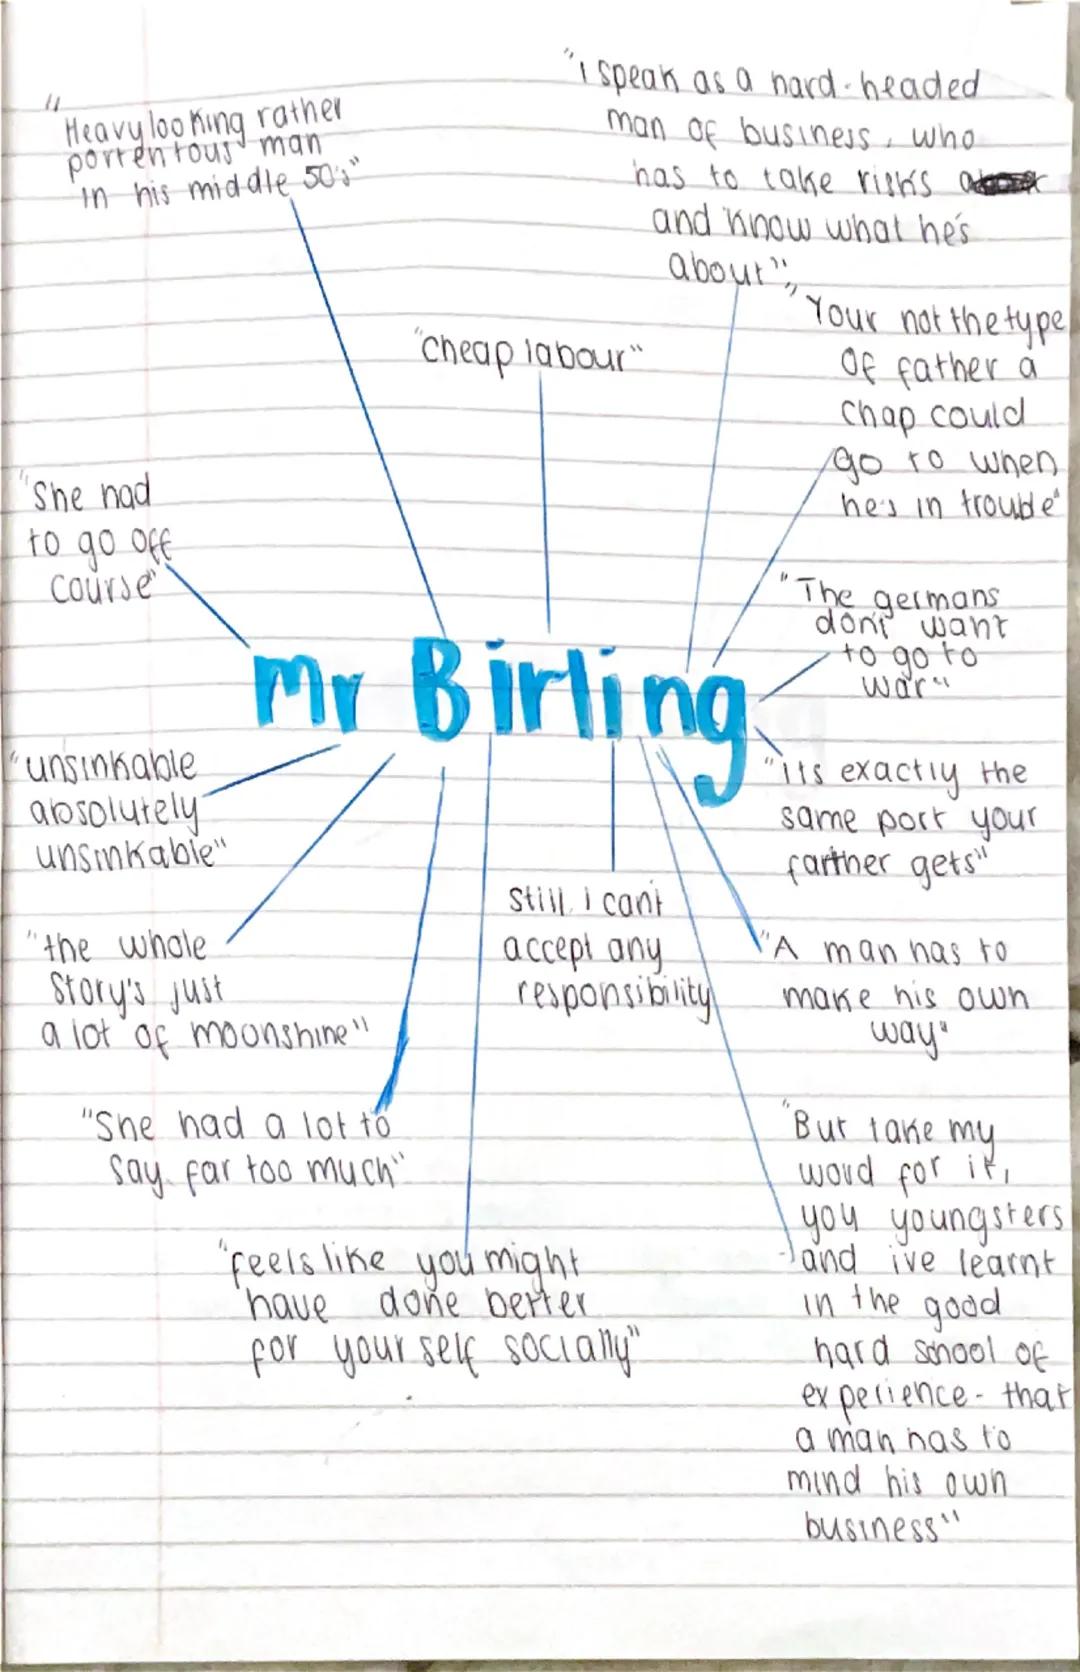 "Heavy looking rather
portentous man
in his middle 50's"
"i speak as a hard-headed
man of business, who
has to take risks
and know what he's
about"
"Your not the type
of father a
chap could
go to when
he's in trouble"
"cheap labour"
"She had
to go off
course"
"The germans
don't want
to go to
war"
Mr Birling
"unsinkable
absolutely
unsinkable"
"its exactly the
same port your
farther gets"
still i can't
accept any
responsibility
"the whole
Story's just
a lot of moonshine"
"A man has to
make his own
way"
"She had a lot to
say. far too much"
"But take my
word for it,
you youngsters
and ive learnt
in the good
hard school of
experience - that
a man has to
mind his own
business"
"feels like you might
have done better
for your self socially"